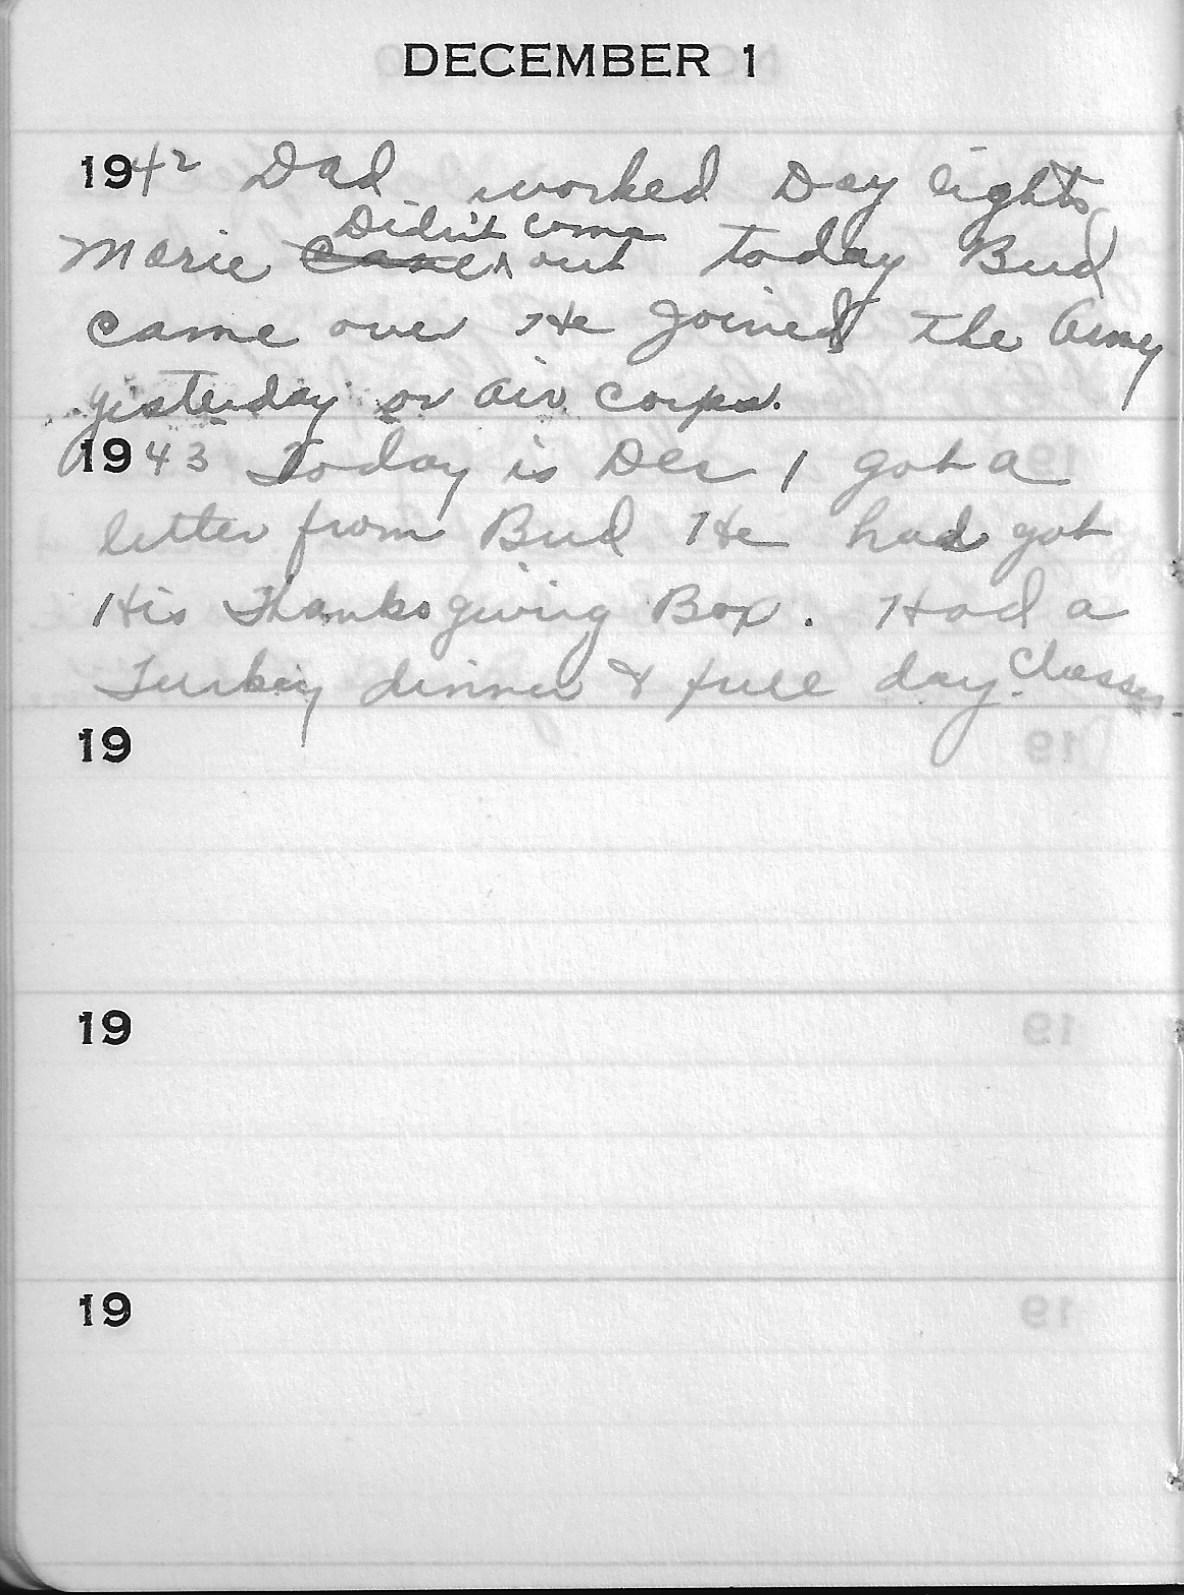 DECEMBER 1
1942 Dad worked Day lights
Didn't come
Marie came out today Bud
came over He joined the Army
yisterday or air corps.
1943 Today is Dec 1 got a
letter from Bud He had got
His Thanksgiving Box. Had a
Turkey dinner & full day. Classes
19
19
19